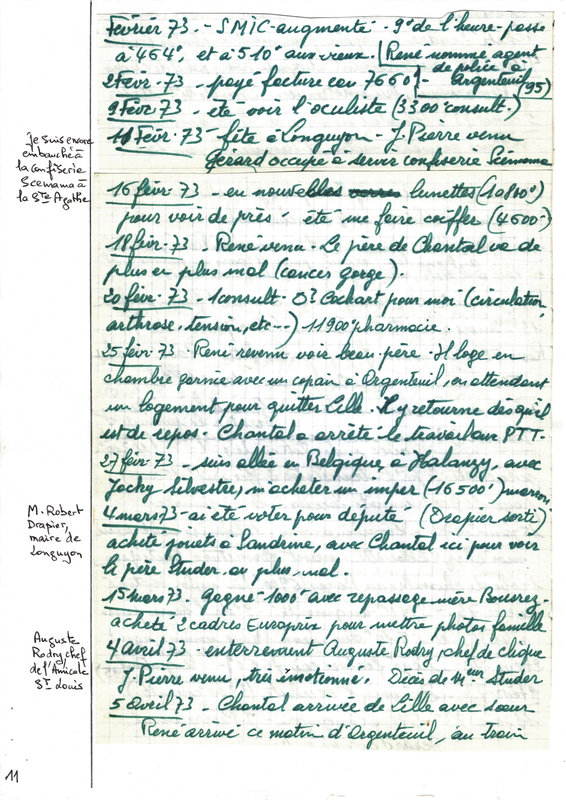 Février 73. - SMIC augmenté - 9° de l'heure - passe
à 464F, et à 510F aux vieux. René nommé agent
de police à
2 Févr. 73 - payé facture eau 7660F - Argenteuil (95)
9 Févr 73 - été voir l'oculiste (3300 consult.)
11 Févr. 73 - fête à Longuyon - J. Pierre venu
Gérard occupé à servir confiserie Scemama
Je suis encore
embauché à
la confiserie
Scemama à
la Ste Agathe
16 févr 73 - eu nouvelles lunettes (10800F)
pour voir de près - été me faire coiffer (4600-)
18 févr. 73 René venu - Le père de Chantal va de
plus en plus mal (cancer gorge).
20 févr. 73 - 1 consult - Dr Cochart pour moi (circulation,
arthrose, tension, etc...) 11900F pharmacie.
25 févr. 73 René revenu voir beau père - Il loge en
chambre garnie avec un copain à Argenteuil, en attendant
un logement pour quitter Lille. Il y retourne dès qu'il
est de repos - Chantal a arrêté le travail aux PTT -
27 févr 73 - suis allée en Belgique, à Halanzy, avec
Jacky Silvestre, m'acheter un imper (16500F) marron
4 mars 73 - ai été voter pour député (Drapier sorti)
acheté jouets à Sandrine, avec Chantal ici pour voir
le père Studer, au plus mal.
M. Robert
Drapier,
maire de
Longuyon
15 mars 73. Gagné 1000F avec repassage mère Bousrez -
acheté 2 cadres Europrix pour mettre photos famille
4 avril 73 - enterrement Auguste Rodry, chef de clique
J. Pierre venu, très émotionné. Décès de Mr Studer
Auguste
Rodry chef
de l'Amicale
St Louis
5 avril 73 - Chantal arrivée de Lille avec soeur
René arrivé ce matin d'Argenteuil, au train
11